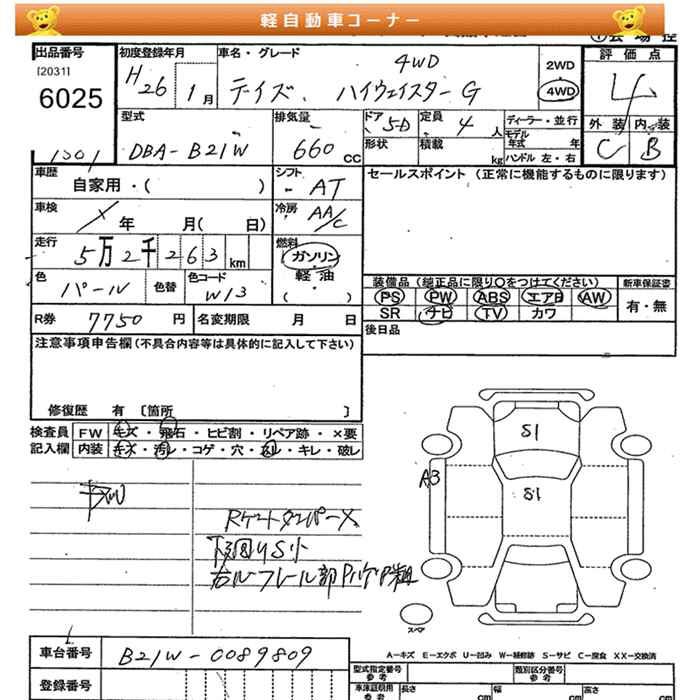 軽自動車コーナー
出品番号
[2031]
6025
初度登録年月
H26 1月
車名・グレード
4WD
デイズ ハイウェイスターG
2WD
4WD
評価点
4
外装 内装
C B
型式
DBA-B21W
排気量
660 CC
ドア 5D
定員 4 人
形状
積載 kg
ディーラー・並行
モデル年式 年
ハンドル 左・右
車歴
自家用・( )
シフト
AT
セールスポイント (正常に機能するものに限ります)
車検
年 月( 日)
冷房
AA/C
走行
5万2千263km
燃料
ガソリン
軽油
( )
色
パール
色替
色コード
W13
装備品 (純正品に限り○をつけてください)
新車保証書
PS PW ABS エアB AW
有・無
SR ナビ TV カワ
R券 7750円
名変期限 月 日
後日品
注意事項申告欄(不具合内容等は具体的に記入して下さい)
修復歴 有 〔箇所 〕
検査員
記入欄
FW キズ・飛石・ヒビ割・リペア跡・×要
内装 キズ・汚レ・コゲ・穴・スレ・キレ・破レ
S1
A3
S1
Rゲートダンパー×
下回りS小
スペア
A=キズ E=エクボ U=凹み W=補修跡 S=サビ C=腐食 XX=交換済
車台番号
B21W-0089809
登録番号
型式指定番号
参考
類別区分番号
参考
車庫証明用
参考
長さ cm
幅 cm
高さ cm